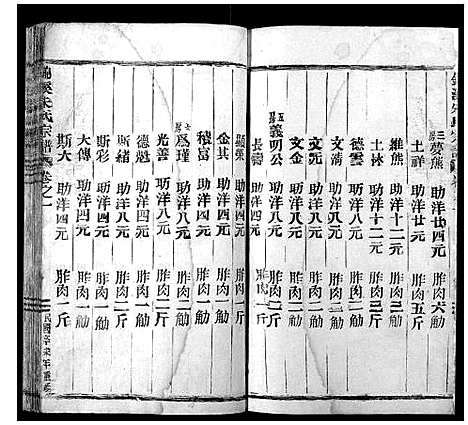 三房 夢熊 助洋廿四元 胙肉六觔
士祥 助洋廿元 胙肉五斤
維熊 助洋十二元 胙肉三觔
士林 助洋十二元 胙肉三斤
德雲 助洋八元 胙肉二觔
文清 助洋八元 胙肉二斤
文元 助洋八元 胙肉二觔
文金 助洋八元 胙肉二斤
五房 義明公 助洋八元 胙肉二觔
長壽 助洋 元 胙肉 斤
顯張 助洋四元 胙肉一斤
金其 助洋四元 胙肉一觔
積富 助洋四元 胙肉一觔
七房 爲瑾 助洋八元 胙肉二觔
光善 助洋八元 胙肉二斤
德魁 助洋四元 胙肉一觔
斯緒 助洋八元 胙肉二斤
斯彩 助洋四元 胙肉一觔
大傳 助洋四元 胙肉一觔
斯大 助洋四元 胙肉一斤
朱氏宗譜 卷之一
民國辛未年重